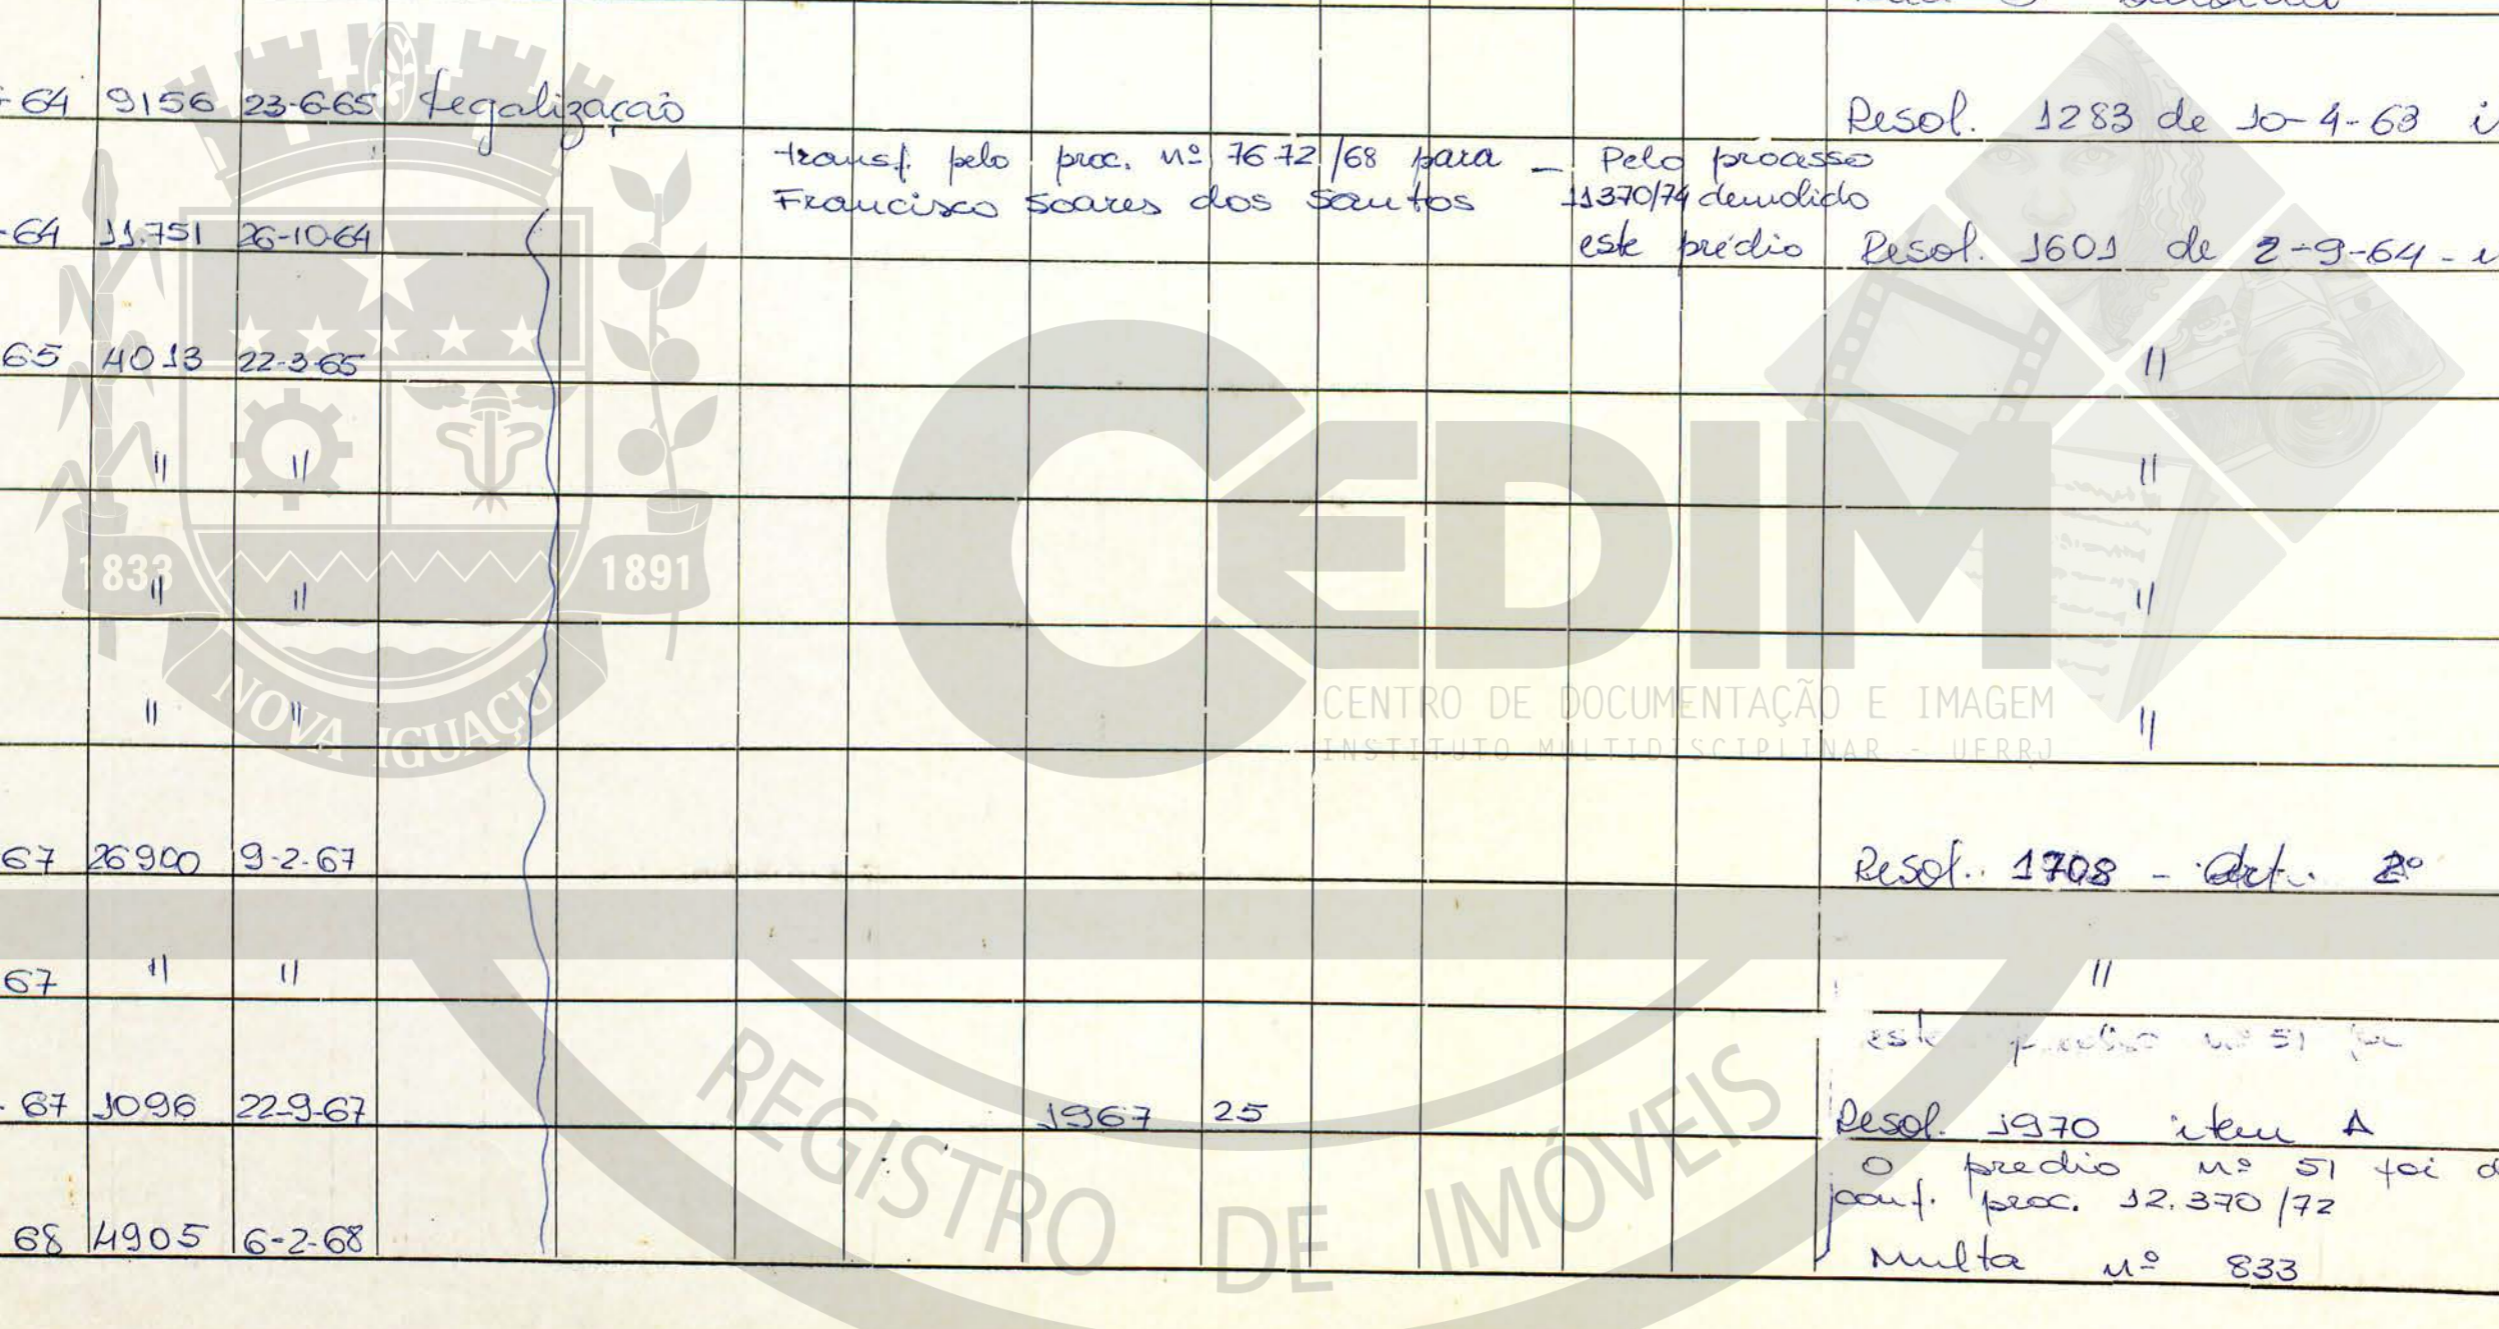 -64 9156 23-6-65 Legalização Resol. 1283 de 10-4-63
transf. pelo proc. nº 7672/68 para — Pelo processo
Francisco Soares dos Santos 11370/74 demolido
-64 11.751 26-10-64 este prédio Resol. 1601 de 2-9-64 -
65 4013 22-3-65 "
" " "
" " "
" " "
67 26900 9-2-67 Resol. 1708 - Art. 2º
67 " " "
este nº 51
- 67 1096 22-9-67 1967 25 Resol. 1970 item A
O predio nº 51 foi
conf. proc. 12.370/72
68 4905 6-2-68
Multa nº 833
1833 1891
NOVA IGUAÇU
CEDIM
CENTRO DE DOCUMENTAÇÃO E IMAGEM
INSTITUTO MULTIDISCIPLINAR - UFRRJ
REGISTRO DE IMÓVEIS